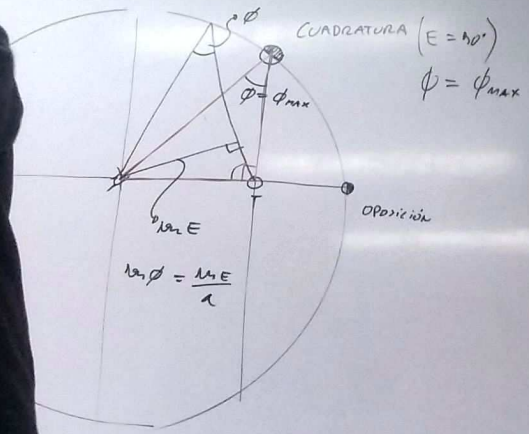 ϕ
CUADRATURA (E = 90°)
ϕ = ϕMAX
ϕ = ϕMAX
T
OPOSICIÓN
sen E
sen ϕ = sen E / a